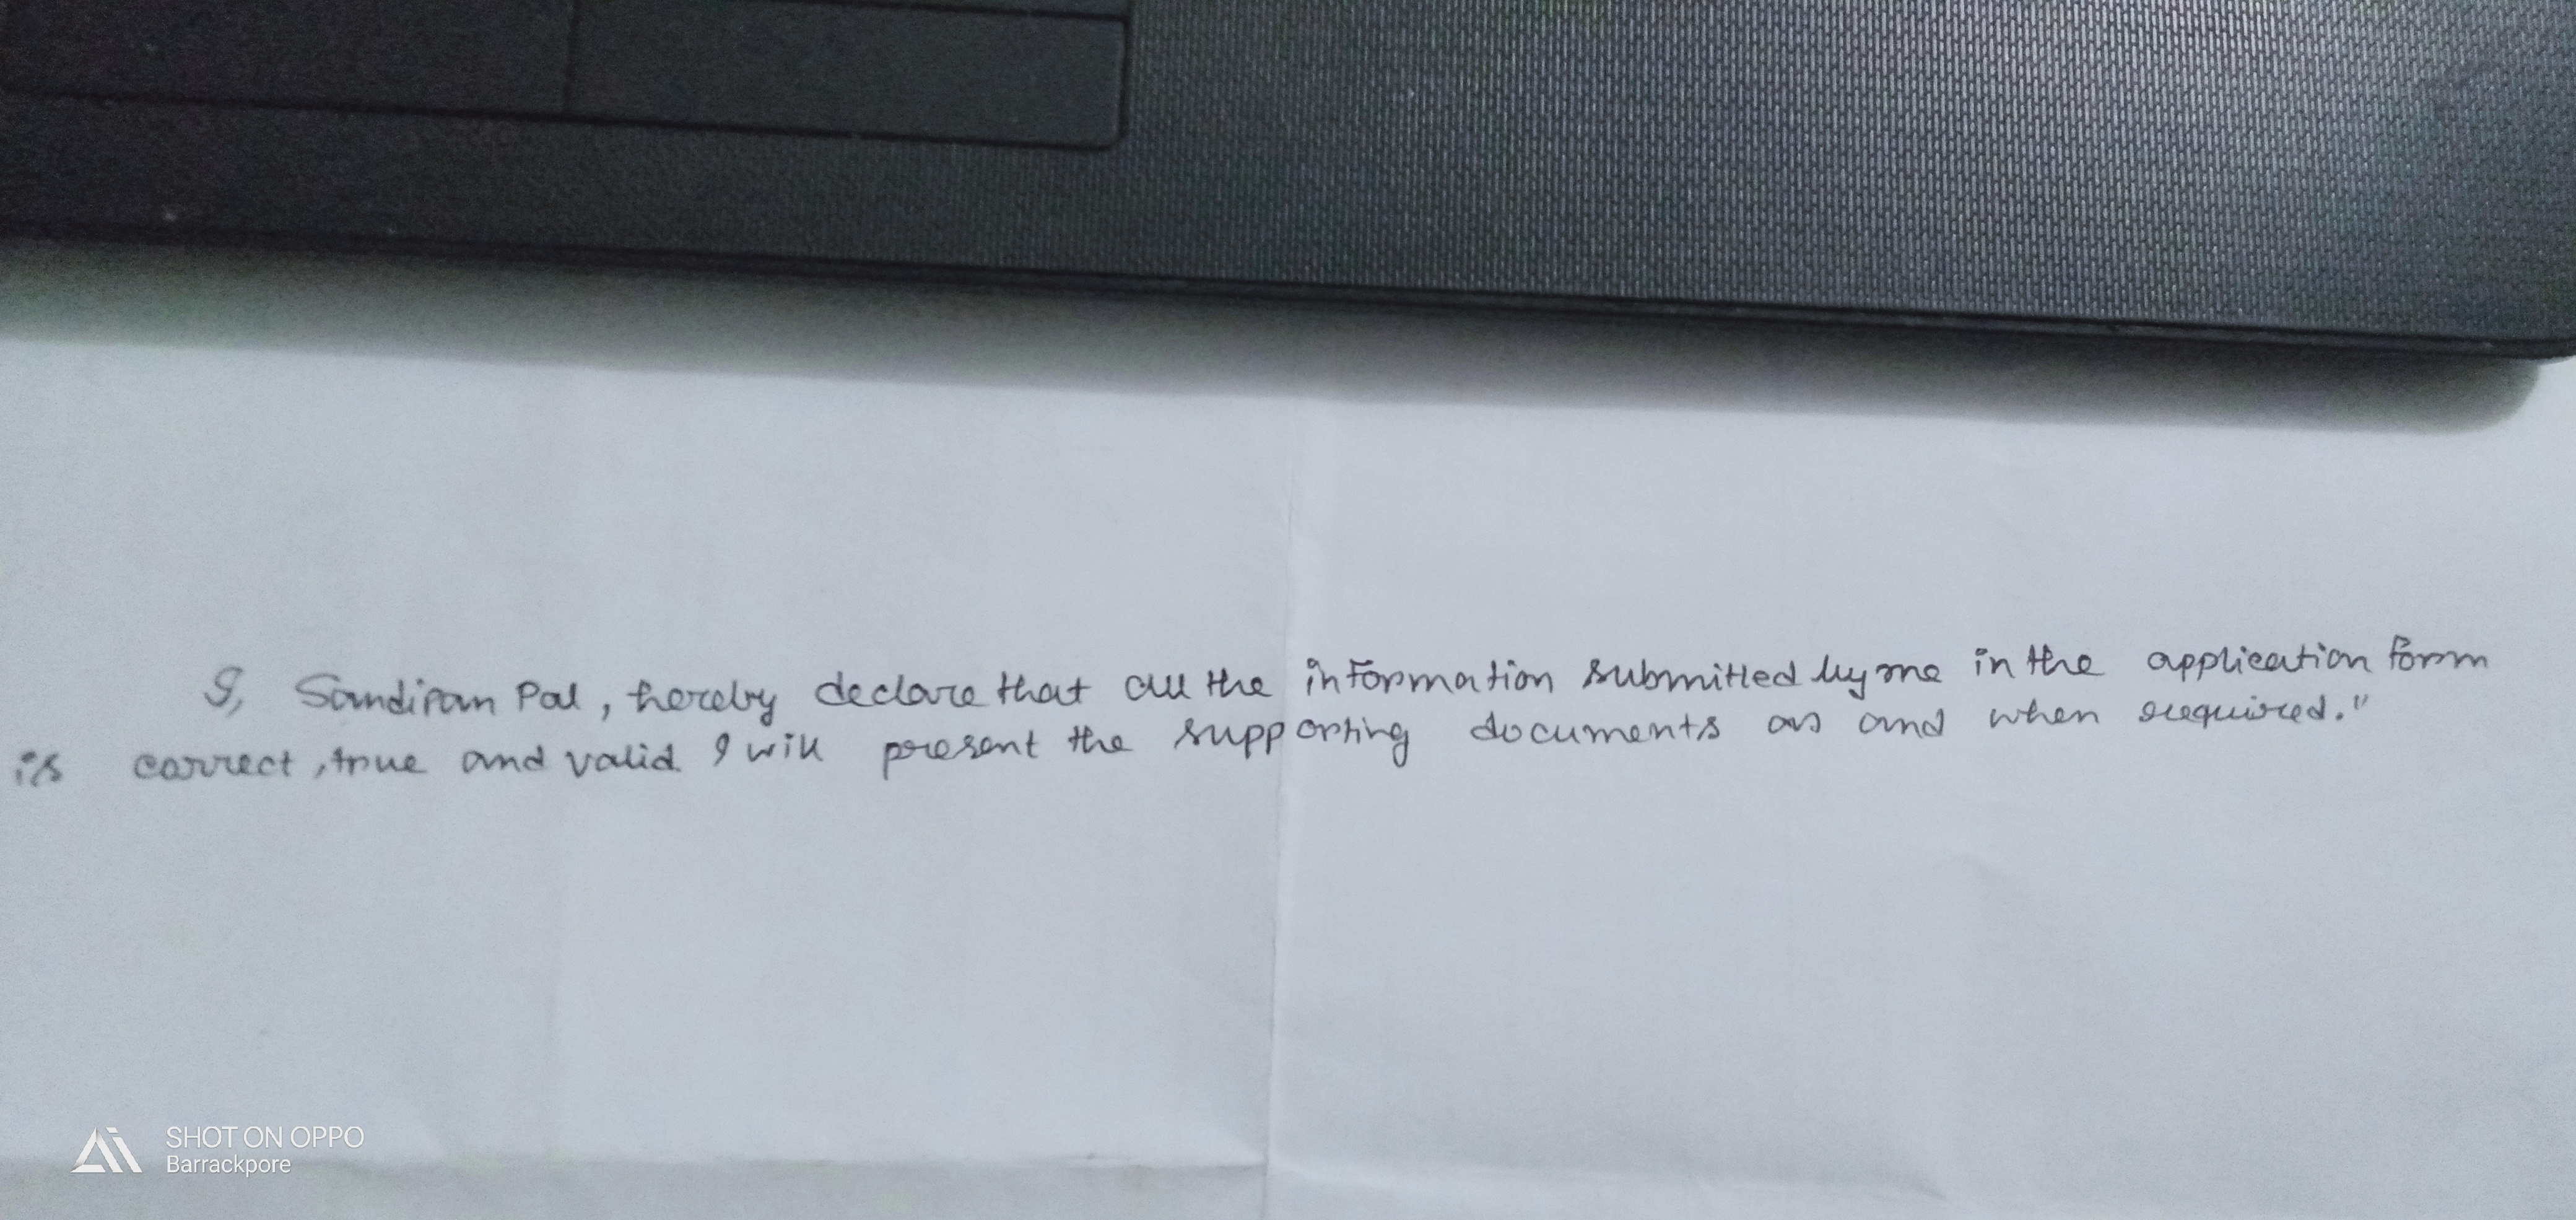 I, Sandipan Pal, hereby declare that all the information submitted by me in the application form
is correct, true and valid. I will present the supporting documents as and when required."
SHOT ON OPPO
Barrackpore